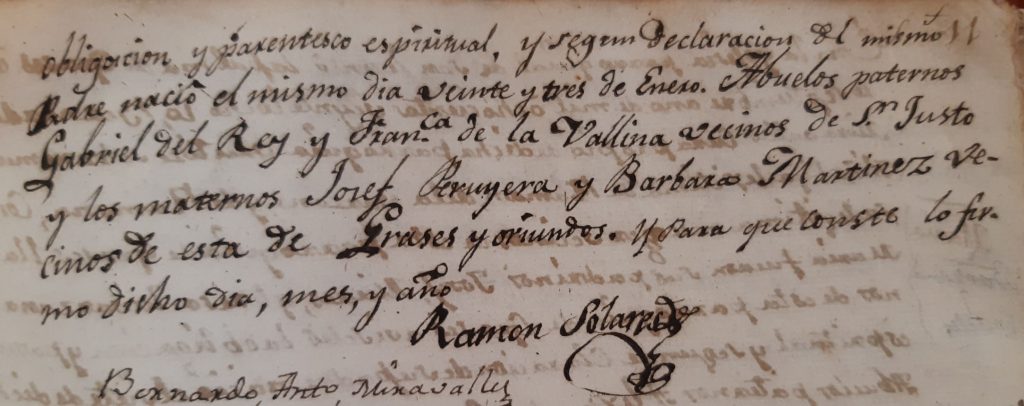 obligacion y parentesco espiritual, y segun declaracion del mismo
Padre nacio el mismo dia veinte y tres de Enero. Abuelos paternos
Gabriel del Rey y Fran.ca de la Vallina vecinos de Sn. Justo
y los maternos Josef Peruyera y Barbara Martinez ve-
cinos de esta de Grases y oriundos. Y para que conste lo fir-
mo dicho dia, mes, y año
Ramon Solares
Bernardo, Anto, Miravalles